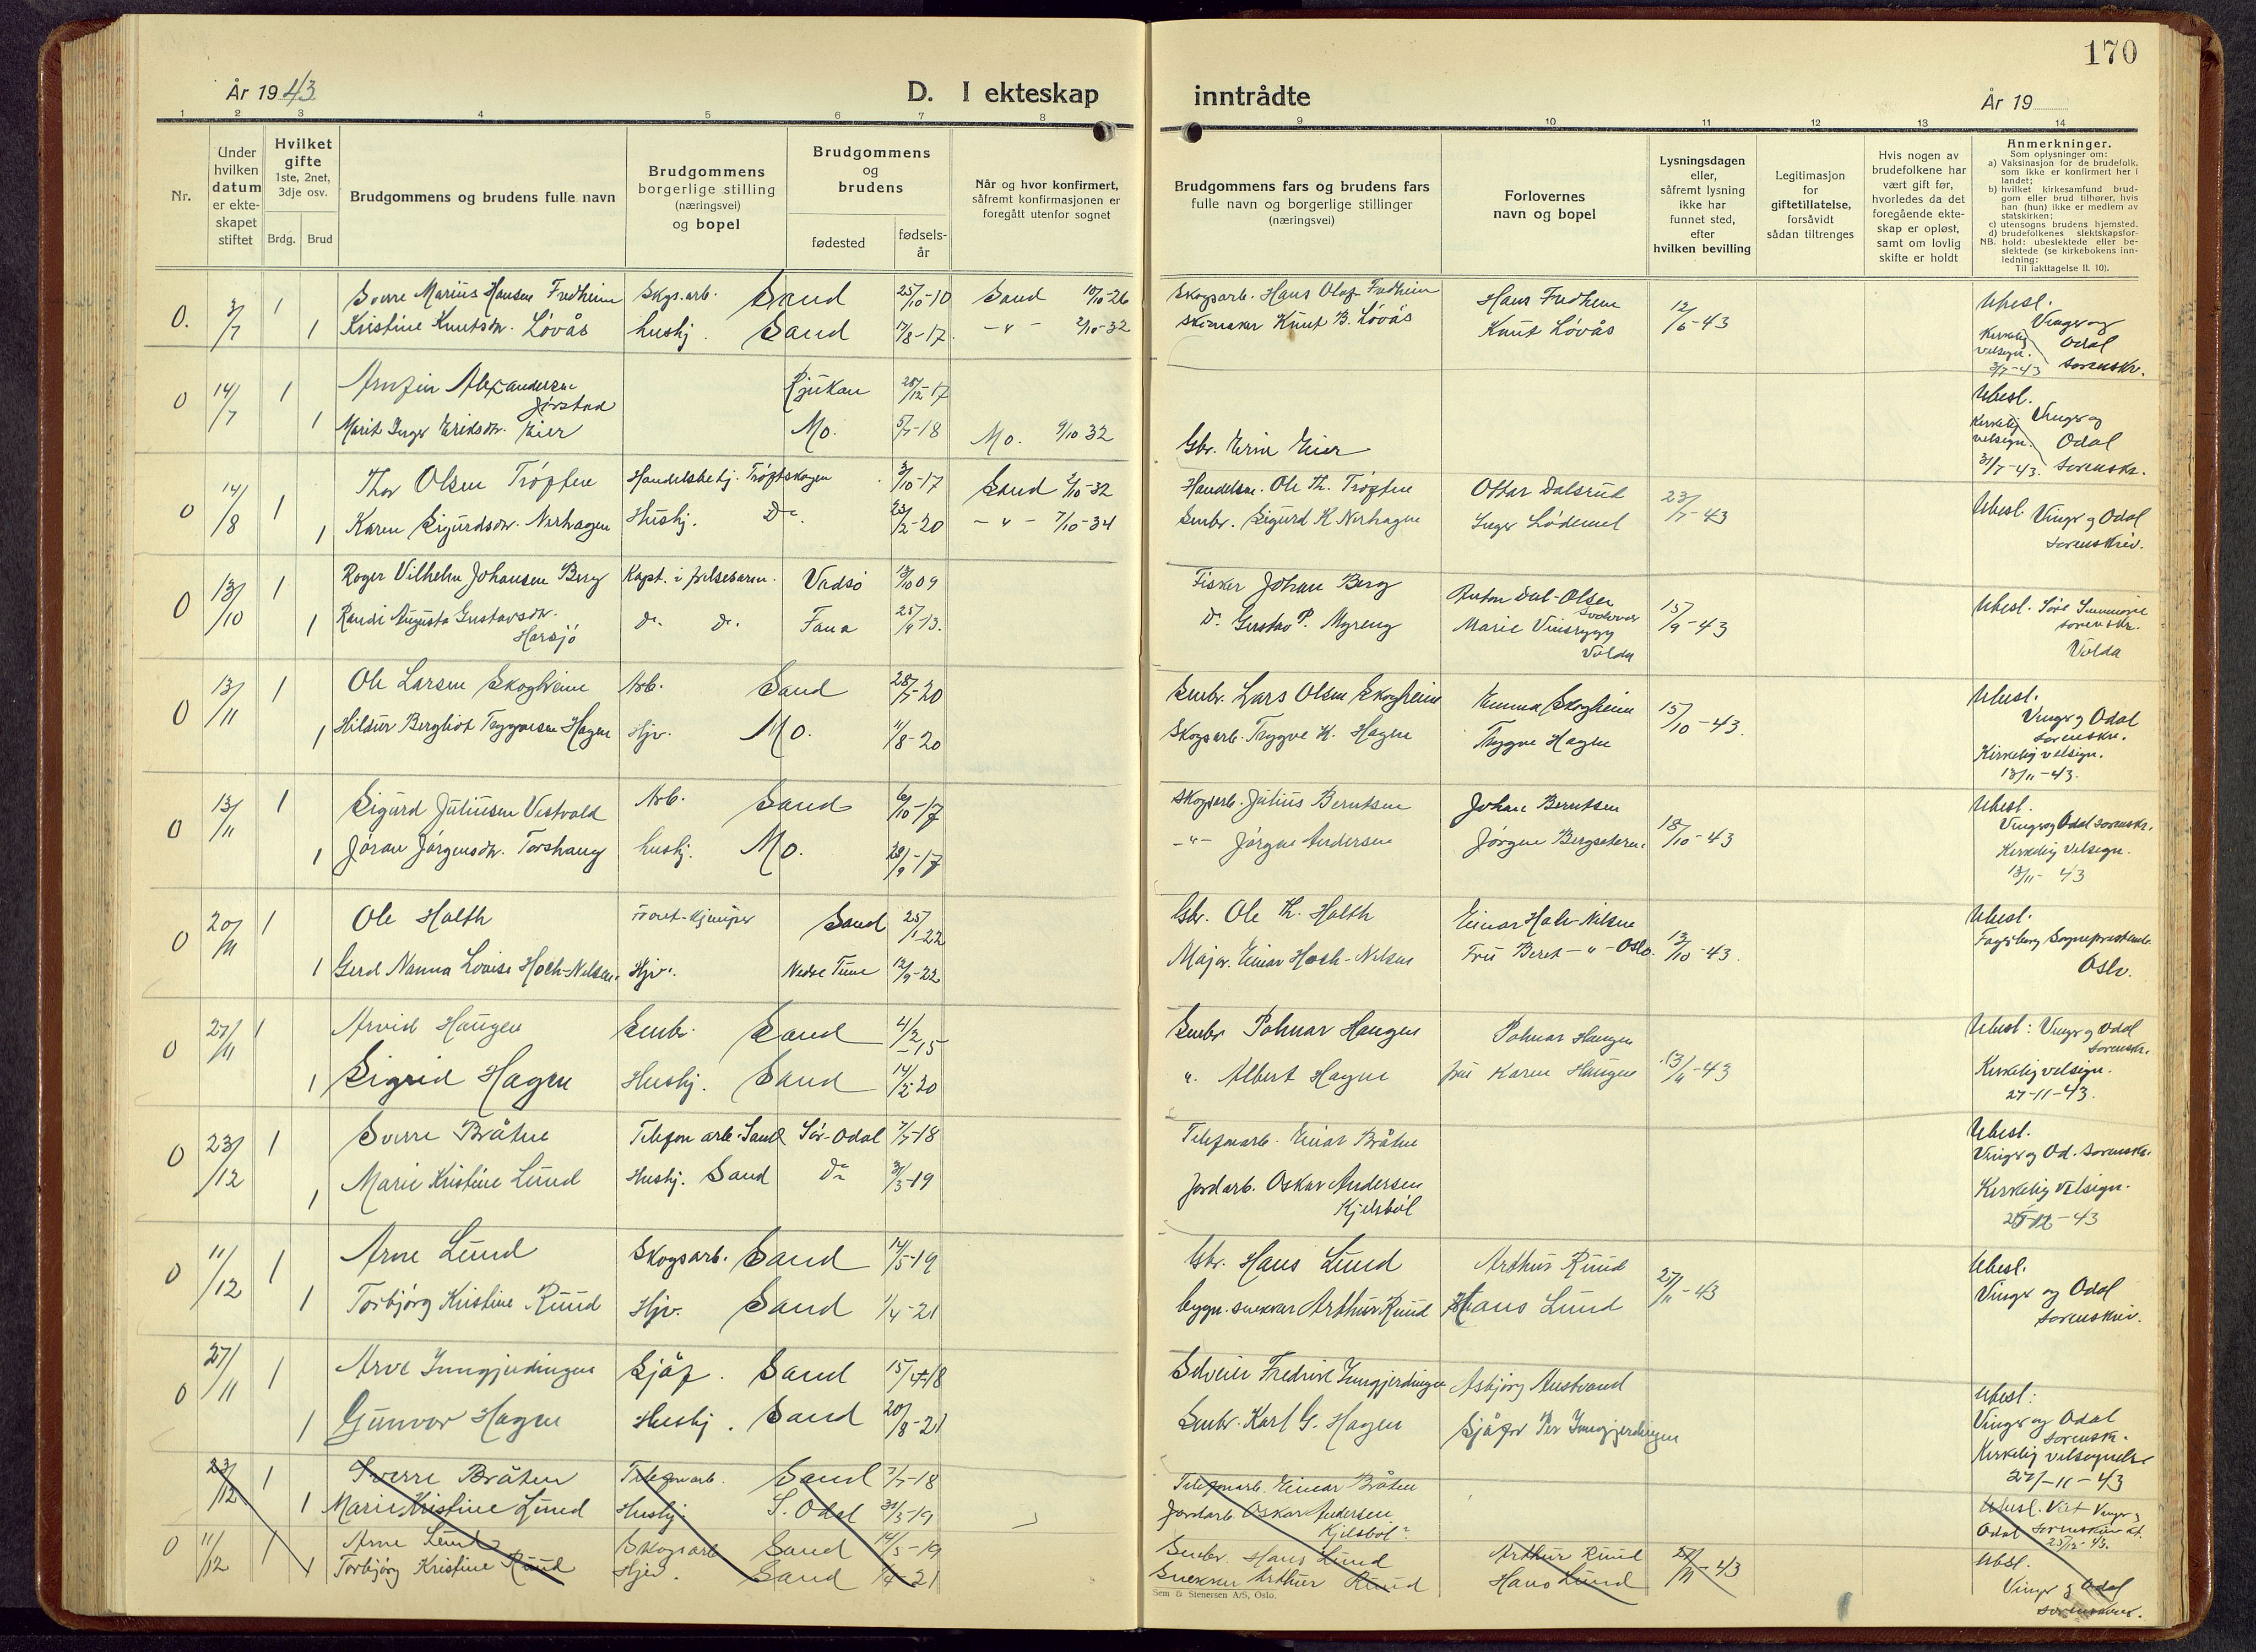 170
År 1943
D. I ekteskap
inntrådte
År 19
1 2 3 4 5 6 7 8 9 10 11 12 13 14
Nr.
Under hvilken datum er ekteskapet stiftet
Hvilket gifte 1ste, 2net, 3dje osv.
Brdg. Brud
Brudgommens og brudens fulle navn
Brudgommens borgerlige stilling (næringsvei) og bopel
Brudgommens og brudens
fødested
fødselsår
Når og hvor konfirmert, såfremt konfirmasjonen er foregått utenfor sognet
Brudgommens fars og brudens fars fulle navn og borgerlige stillinger (næringsvei)
Forlovernes navn og bopel
Lysningsdagen eller, såfremt lysning ikke har funnet sted, efter hvilken bevilling
Legitimasjon for giftetillatelse, forsåvidt sådan tiltrenges
Hvis nogen av brudefolkene har vært gift før, hvorledes da det foregående ekteskap er opløst, samt om lovlig skifte er holdt
Anmerkninger.
Som oplysninger om:
a) Vaksinasjon for de brudefolk, som ikke er konfirmert her i landet;
b) hvilket kirkesamfund brudgom eller brud tilhører, hvis han (hun) ikke er medlem av statskirken;
c) utensogns brudens hjemsted.
d) brudefolkenes slektskapsforhold: ubeslektede eller beslektede (se kirkebokens innledning:
NB.
Til iakttagelse II. 10).
0. 3/7 1 Sverre Marius Hansen Fredheim Skgs.arb. Sand 25/10-10 Sand 10/10-26 Skogsarb. Hans Olaf Fredheim Hans Fredheim 12/6-43 Ubesl.
1 Kristine Knutsdtr. Løvås husbj. Sand 17/8-17. -"- 2/10-32 Skomaker Knut B. Løvås Knut Løvås Vinger og Odal sorenskr.
Kirkelig velsign. 3/7-43
0 14/7 1 Arnfin Alexandersen Jørstad Rjukan 28/12-17 Ubesl.
1 Marit Inger Eriksdtr. Eier Mo. 5/7-18 Mo. 9/10 32 Gbr. Erik Eier Vinger og Odal sorenskr.
Kirkelig velsign. 31/7-43.
0 14/8 1 Thor Olsen Trøften Handelsbetj. Trøftskogen 3/10-17 Sand 2/10-32 Handelsm. Ole Th. Trøften Ottar Dalsrud 23/7-43 Ubesl. Vinger og Odal
1 Karen Sigurdsdtr. Nerhagen Husbj. Do. 23/2-20 -"- 7/10-34 Smbr. Sigurd K Nerhagen Inger Lødemel sorenskriv.
0 13/10 1 Roger Vilhelm Johansen Berg Kapt. i frelsesarm. Vadsø 13/10 09 Fisker Johan Berg Anton Dal-Olsen 15/9-43 Ubesl. Søre Sunnmøre sorenskr.
1 Randi Augusta Gustavsdtr. Harsjø do. do. Fana 25/9-13. Do. Gustav P. Myreng Marie Vinsrygg Volda Volda
0 13/11 1 Ole Larsen Skogheim Arb. Sand 28/7-20 Smbr. Lars Olsen Skogheim Emma Skogheim 15/10-43. Ubesl.
1 Hildur Bergliot Trygvesen Hagen Hjv. Mo. 11/8-20 Skogsarb. Trygve K. Hagen Trygve Hagen Vinger og Odal sorenskr.
Kirkelig velsign. 13/11-43.
0 13/11 1 Sigurd Juliusen Vestvold Arb. Sand 6/10-17 Skogsarb. Julius Berntsen Johan Berntsen 18/10-43 Ubesl.
1 Jøran Jørgensdtr. Torshaug husbj. Mo. 28/9-17 -"- Jørgen Andersen Jørgen Bergseteren. Vinger og Odal sorenskr.
Kirkelig velsign. 13/11-43
0 20/11 1 Ole Holth Front-kjemper Sand 25/1-22 Gbr. Ole Th. Holth Einar Høch-Nilsen 13/10-43. Ubesl.
1 Gerd Nanna Lovise Høch-Nilsen. Hjv. Nedre Tune 12/9-22 Major. Einar Høch-Nilsen Fru Beret -"- Oslo. Fagerborg Sogneprestemb. Oslo.
0 27/11 1 Arvid Haugen Smbr. Sand 4/2-15 Smbr Polmar Haugen Polmar Haugen 13/11-43 Ubesl: Vinger og Odal sorenskr.
1 Sigrid Hagen Husbj. Sand 14/5-20 ". Albert Hagen fru Karen Haugen Kirkelig velsign.
27-11-43.
0 23/12 1 Sverre Bråten Telefon arb. Sand Sør-Odal 7/7-18 Telefonarb. Einar Bråten Ubesl.
1 Marie Kristine Lund Husbj. Sand do 31/3-19 Jordarb. Oskar Andersen Kjelsbøl Vinger og Od. sorenskr.
Kirkelig velsign.
-43
0 11/12 1 Arne Lund Skogsarb. Sand 14/5-19 Gbr. Hans Lund Arthur Ruud 27/11-43 Ubesl.
1 Torbjørg Kristine Ruud Hjv. Sand 1/4-21 bygn.snekker Arthur Ruud Hans Lund Vinger og Odal sorenskriv.
0 27/11 1 Arve Inngjerdingen Sjåf. Sand 15/4-18 Selveier Fredrik Inngjerdingen Asbjørg Austvand Ubesl:
1 Gunvor Hagen Husbj. Sand 20/8-21 Smbr. Karl G. Hagen Sjåfør Per Inngjerdingen Vinger og Odal sorenskr.
Kirkelig velsignelse 27/-11-43
23/12 1 Sverre Bråten Telefonarb. Sand 7/7-18 Telefonarb. Einar Bråten
1 Marie Kristine Lund Husbj. S. Odal 31/3-19 Jordarb Oskar Andersen Kjelsbøl? Ubesl. Viet Vinger og Odal sorenskriv at. 23/12-43.
0 11/12 1 Arne Lund Skogsarb Sand 14/5-19 Smbr. Hans Lund Arthur Ruud 27/11-43 Ubsl.
1 Torbjørg Kristine Ruud Hjv. Sand 1/4-21 Snekker Arthur Ruud Hans Lund Vinger og Odal sorenskriv.
Sem & Stenersen A/S, Oslo.